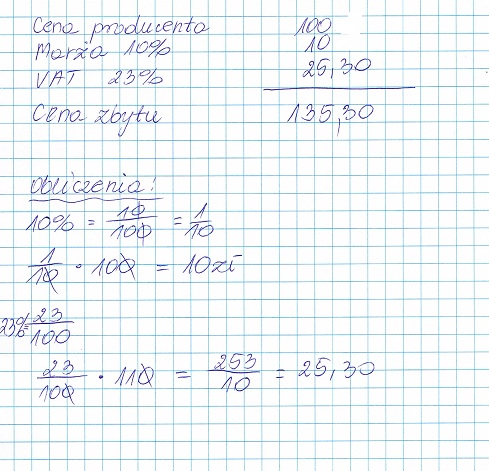 Cena producenta 100
Marża 10% 10
VAT 23% 25,30
Cena zbytu 135,30
obliczenia:
10% = 10/100 = 1/10
1/10 · 100 = 10zł
23% = 23/100
23/100 · 110 = 253/10 = 25,30